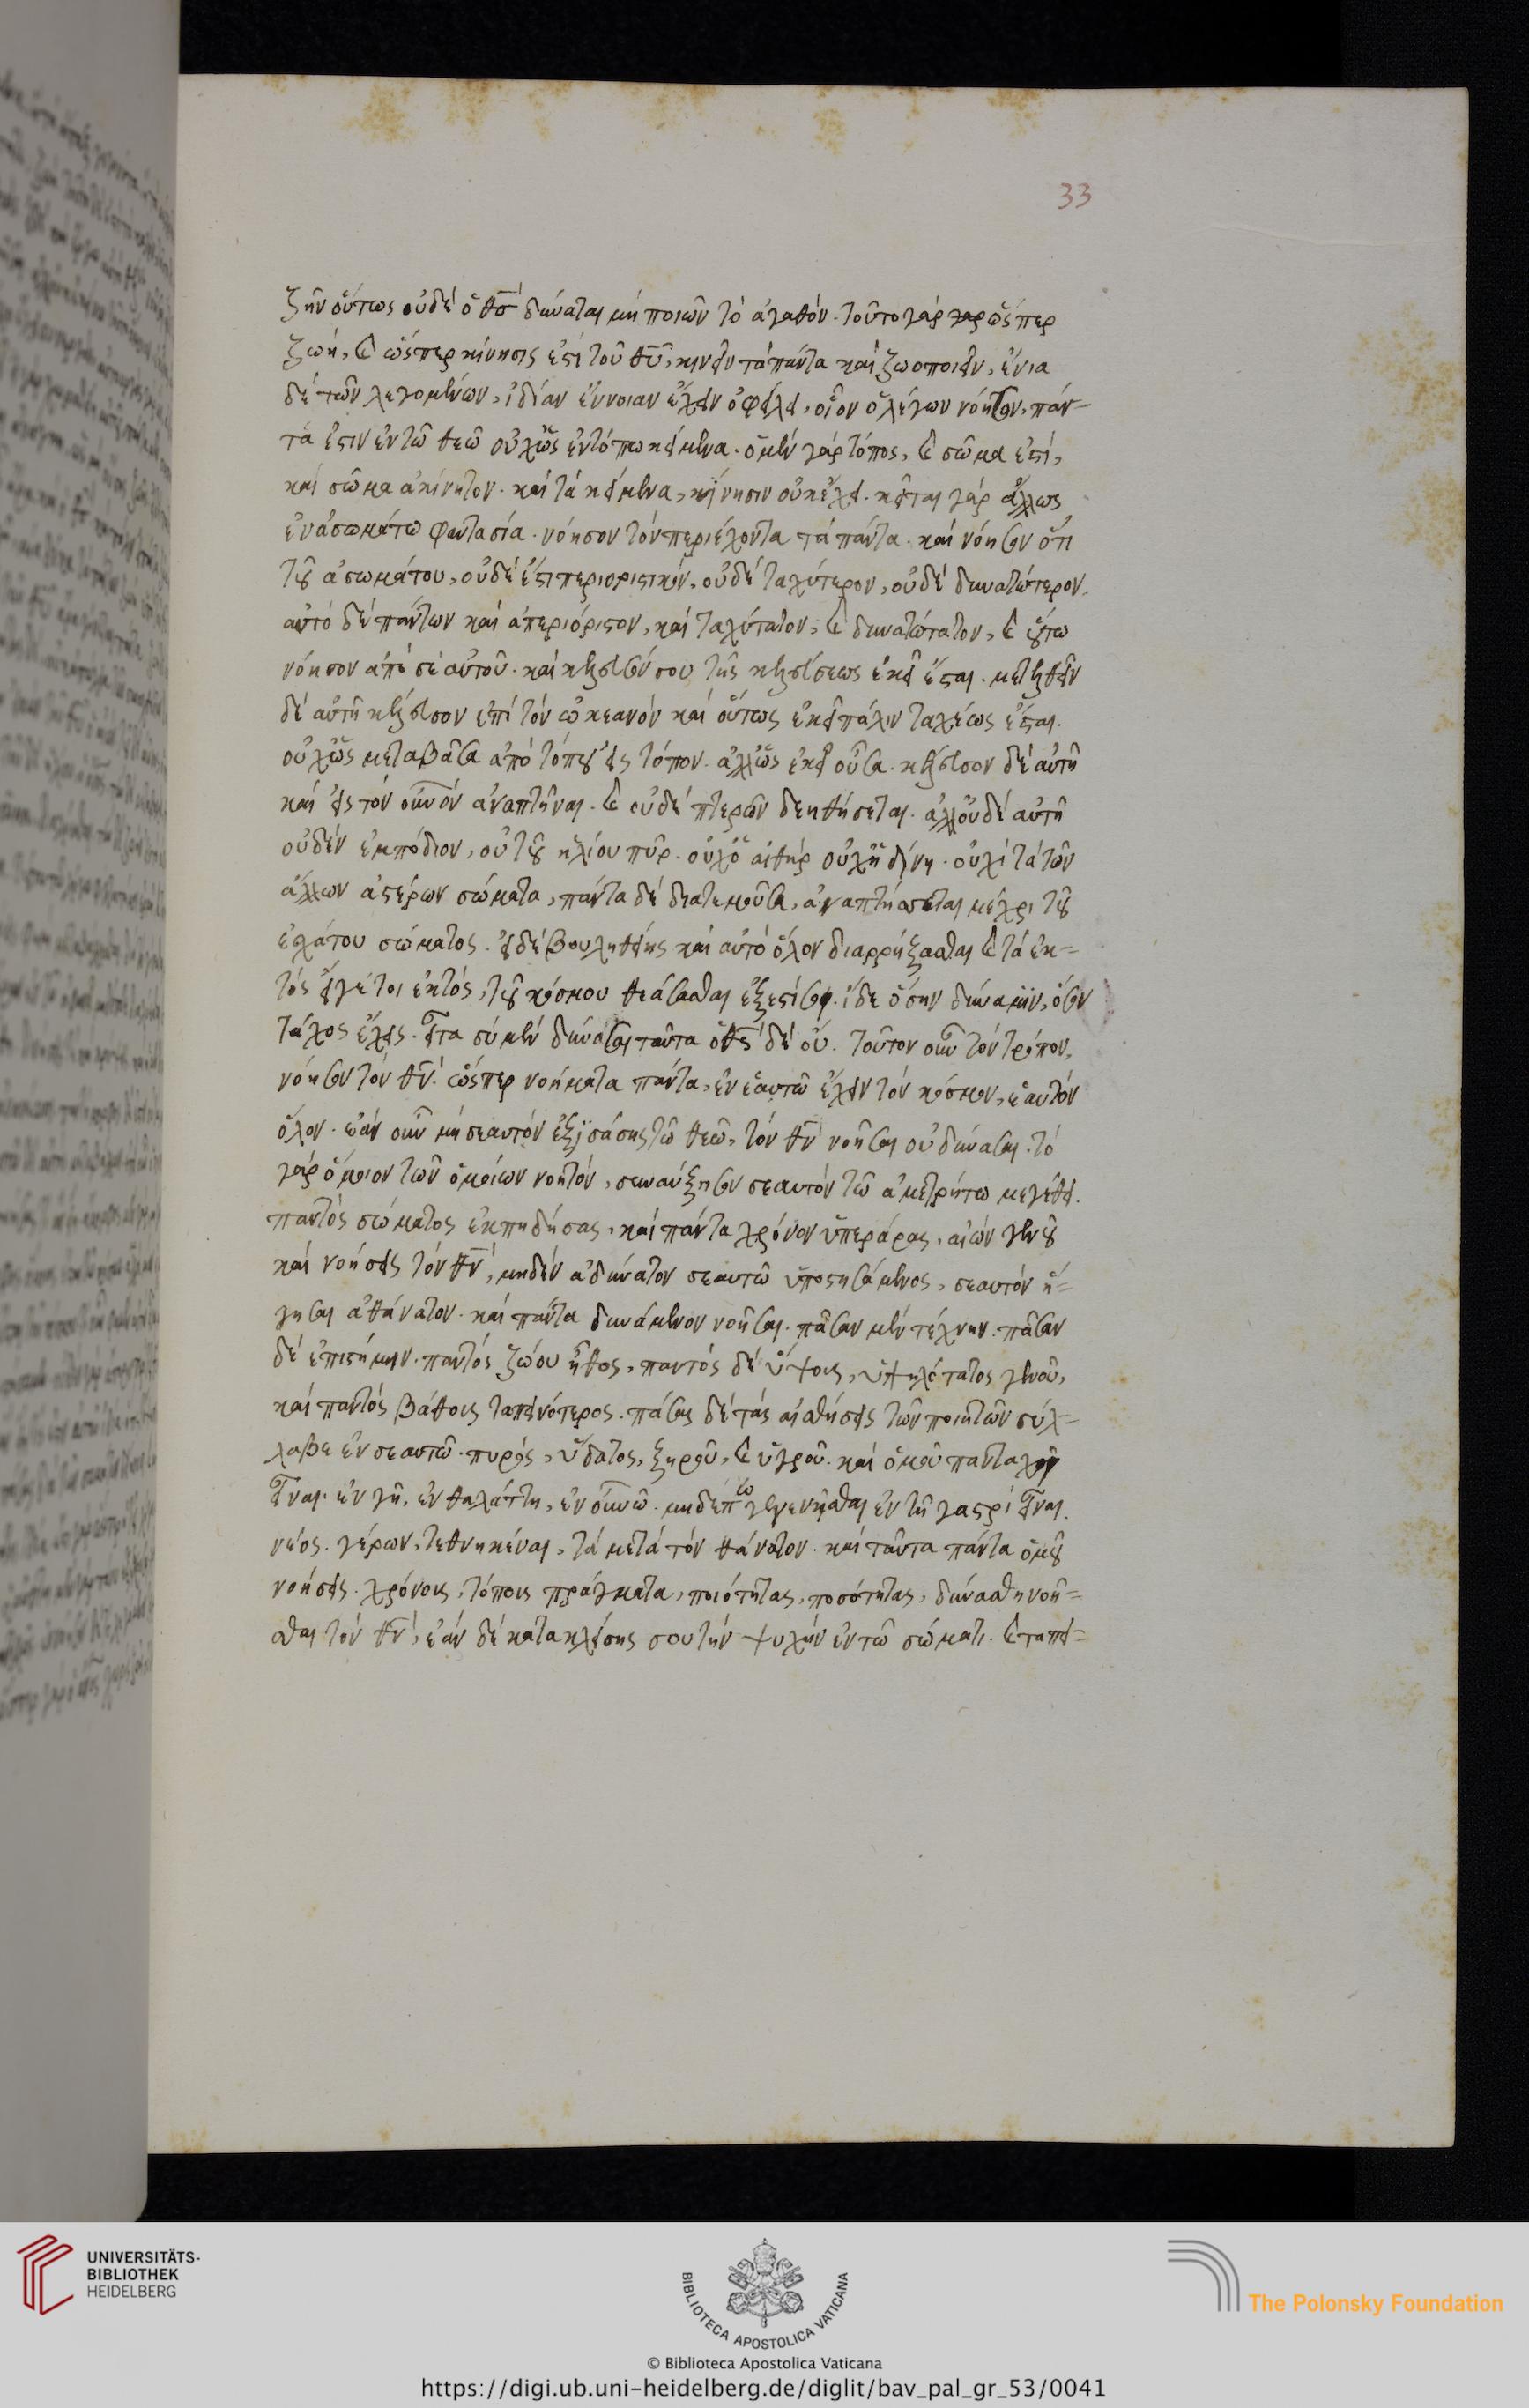 33
ζῆν οὕτως οὐδὲ ὁ θσ̅ δύναται μὴ ποιῶν τὸ ἀγαθόν. τοῦτο γάρ ὥσπερ
ζωή, καὶ ὥσπερ κίνησις ἐστὶ τοῦ θυ̅, κινεῖν τὰ πάντα καὶ ζωοποιεῖν, ἔνια
δὲ τῶν λεγομένων, ἰδίαν ἔννοιαν ἔχειν ὀφείλει, οἷον ὃ λέγων νόησον, πάν-
τα ἐστιν ἐν τῶ θεῶ οὐχ ὡς ἐν τόπω κείμενα. ὁ μὲν γὰρ τόπος, καὶ σῶμα ἐστί,
καὶ σῶμα ἀκίνητον. καὶ τὰ κείμενα, κίνησιν οὐκ ἔχει. κεῖται γὰρ ἄλλως
ἐν ἀσωμάτω φαντασία. νόησον τὸν περιέχοντα τὰ πάντα. καὶ νόησον ὅτι
τοῦ ἀσωμάτου, οὐδὲ ἔστι περιοριστικόν, οὐδὲ ταχύτερον, οὐδὲ δυνατώτερον.
αὐτὸ δὲ πάντων καὶ ἀπεριόριστον, καὶ ταχύτατον, καὶ δυνατώτατον, καὶ οὕτω
νόησον ἀπὸ σὲ αὐτοῦ. καὶ κέλευσόν σου τῆς κελεύσεως ἐκεῖ ἔσται. μετελθεῖν
δὲ αὐτῆ κέλευσον ἐπὶ τὸν ὠκεανόν καὶ οὕτως ἐκεῖ πάλιν ταχέως ἔσται.
οὐχ ὡς μεταβᾶσα ἀπὸ τόπου εἰς τόπον. ἀλλ' ὡς ἐκεῖ οὖσα. κέλευσον δὲ αὐτῆ
καὶ εἰς τὸν οὐνον ἀναπτῆναι. καὶ οὐδὲ πτερῶν δεηθήσεται. ἀλλ' οὐδὲ αὐτῆ
οὐδὲν ἐμπόδιον, οὐ τοῦ ἡλίου πῦρ. οὐχ ὁ αἰθήρ οὐχ ἡ δίνη. οὐχὶ τὰ τῶν
ἄλλων ἀστέρων σώματα, πάντα δὲ διατεμοῦσα, ἀναπτήσεται μέχρι τοῦ
ἐσχάτου σώματος. εἰ δὲ βουληθείης καὶ αὐτὸ ὅλον διαρρήξασθαι καὶ τὰ ἐκ-
τός εἴγέ τοι ἐκτός, τοῦ κόσμου θεάσασθαι ἔξεστί σοι. ἴδε ὅσην δύναμιν, ὅσον
τάχος ἔχεις. εἶτα σὺ μὲν δύνασαι ταῦτα ὁ θς̅ δὲ οὔ. τοῦτον οὖν τὸν τρόπον,
νόησον τὸν θν̅. ὥσπερ νοήματα πάντα, ἐν ἑαυτῶ ἔχειν τὸν κόσμον, ἑαυτὸν
ὅλον. ἐὰν οὖν μὴ σεαυτὸν ἐξισάσης τῶ θεῶ, τὸν θν̅ νοῆσαι οὐ δύνασαι. τὸ
γὰρ ὅμοιον τῶν ὁμοίων νοητόν, συναύξησον σεαυτὸν τῶ ἀμετρήτω μεγέθει.
παντὸς σώματος ἐκπηδήσας, καὶ πάντα χρόνον ὑπεράρας, αἰών γενοῦ
καὶ νοήσεις τὸν θν̅, μηδὲν ἀδύνατον σεαυτῶ ὑποστησάμενος, σεαυτὸν ἥ-
γησαι ἀθάνατον. καὶ πάντα δυνάμενον νοῆσαι. πᾶσαν μὲν τέχνην. πᾶσαν
δὲ ἐπιστήμην. παντὸς ζώου ἦθος, παντὸς δὲ ὕψους, ὑψηλότατος γενοῦ,
καὶ παντὸς βάθους ταπεινότερος. πάσας δὲ τὰς αἰσθήσεις τῶν ποιητῶν σύλ-
λαβε ἐν σεαυτῶ. πυρός, ὕδατος, ξηροῦ, καὶ ὑγροῦ. καὶ ὁμοῦ πανταχοῦ
εἶναι. ἐν γῆ, ἐν θαλάττη, ἐν οὐνῶ. μηδέπω γεγενῆσθαι ἐν τῆ γαστρί εἶναι.
νέος. γέρων, τεθνηκέναι, τὰ μετὰ τὸν θάνατον. καὶ ταῦτα πάντα ὁμοῦ
νοήσεις. χρόνους, τόπους πράγματα, ποιότητας, ποσότητας, δύνασθαι νοῆ-
σθαι τὸν θν̅, ἐὰν δὲ κατακλείσης σου τὴν ψυχὴν ἐν τῶ σώματι. καὶ ταπει-
UNIVERSITÄTS-
BIBLIOTHEK
HEIDELBERG
BIBLIOTECA APOSTOLICA VATICANA
The Polonsky Foundation
© Biblioteca Apostolica Vaticana
https://digi.ub.uni-heidelberg.de/diglit/bav_pal_gr_53/0041